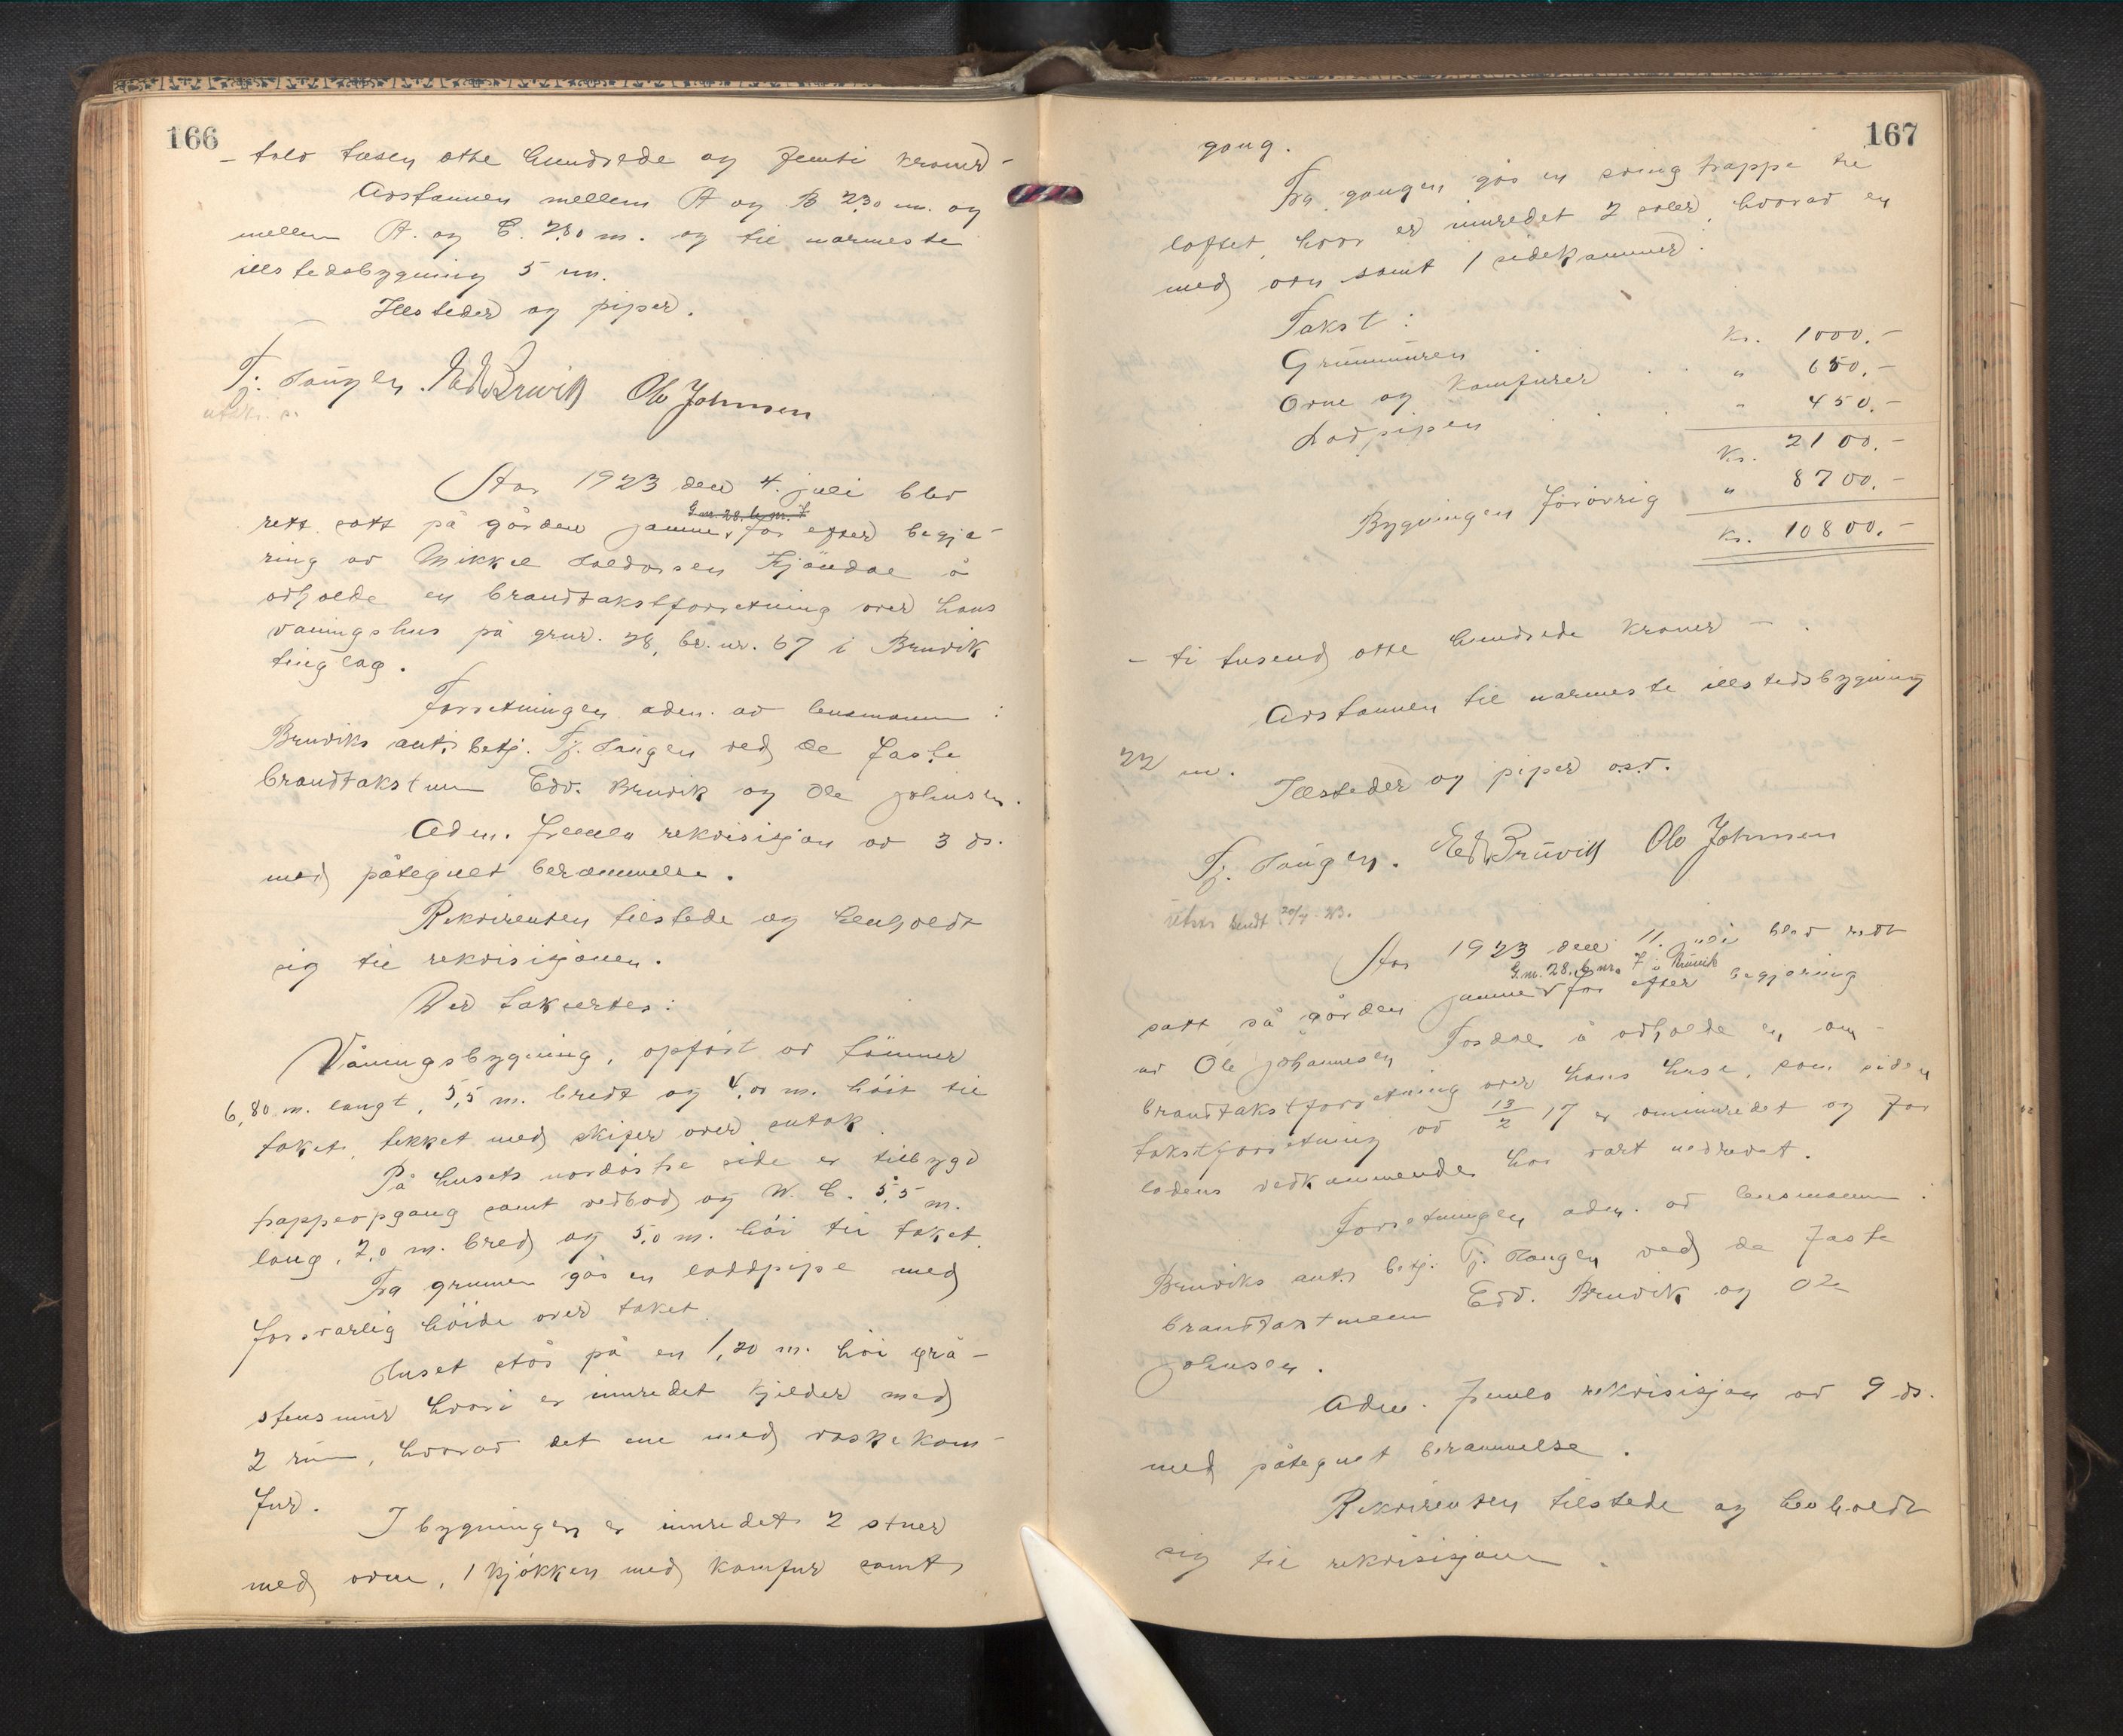 166
- tolv tusen otte hundrede og femti kroner -
Avstannen mellem A og B 2,30 m. og
mellem A. og C. 7,80 m. og til nærmeste
illstedsbygning 5 m.
Illsteder og piper.
Tj. Haugen. Edv Bruvik Ole Johnsen
utskr. s.
Aar 1923 den 4. juli blev
G.nr. 28. b.nr. 7
rett satt på gården Jamne for efter begjæ-
ring av Mikkel Haldorsen Tjöndal å
avholde en brandtakstforretning over hans
våningshus på grnr. 28, br.nr. 67 i Bruvik
tinglag.
Forretningen adm. av lensmann i
Bruviks aut. betj. Tj. Haugen ved de faste
brandtakstmenn Edv. Bruvik og Ole Johnsen.
Adm. fremla rekvisisjon av 3 ds.
med påtegnet berammelse.
Rekvirenten tilstede og henholdt
sig til rekvisisjonen.
Der takseredes:
Våningsbygning, opført av tömmer
6,80 m. langt, 5,5 m. bredt og 4,00 m. höit til
taket, tekket med skifer over sutak.
På husets nordöstre side er tilbygd
trappeopgang samt vedbod og W. C. 5,5 m.
lang, 2,0 m. bred og 5,0 m. höi til taket.
Fra grunnen går en loddpipe med
forsvarlig höide over taket.
Huset står på en 1,20 m. höi grå-
stensmur hvori er innredet kjelder med
2 rum, hvorav det ene med vaskekom-
fur.
I bygningen er innredet 2 stuer
med ovne, 1 kjökken med komfur samt
167
gang.
Fra gangen går en sving trappe til
loftet, hvor er innredet 2 saler, hvorav en
med ovn samt 1 sidekammer.
Takst:
Grunnmuren Kr. 1000.-
Ovne og komfurer " 650.-
Lodpipen " 450.-
Kr. 2100.-
Bygningen forövrig " 8700.-
Kr. 10800.-
- ti tusend otte hundrede kroner -
Avstannen til nærmeste illstedsbygning
22 m.
Illsteder og piper osv.
Tj. Haugen. Edv Bruvik Ole Johnsen
utskr sendt 20/7-23.
Aar 1923 den 11. juli blev rett
G.nr. 28, b.nr. 7 i Bruvik
satt på gården Jamne for efter begjæring
av Ole Johannesen Fosdal å avholde en om-
brandtakstforretning over hans huse, som siden
takstforretning av 13/2 17 er ominnredet og for
lödens vedkommende har vært nedrevet.
Forretningen adm. av lensmann i
Bruviks aut. betj. Tj. Haugen ved de faste
brandtakstmenn Edv. Bruvik og Ole
Johnsen.
Adm. fremla rekvisisjon av 9 ds.
med påtegnet berammelse.
Rekvirenten tilstede og henholdt
sig til rekvisisjonen.